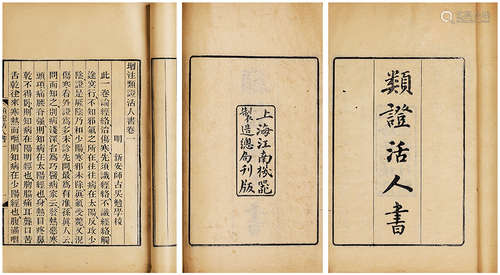 類證活人書
上海江南機器
製造總局刊版
增注類證活人書卷一
明 新安師古吳勉學校
此一卷論經絡治傷寒先須識經絡不識經絡觸
途冥行不知邪氣之所在往往病在太陽反攻少
陰證是厥陰乃和少陽寒邪未除眞氣受斃又況
傷寒看外證爲多未診先問最爲有准孫眞人云
問而知之別病淺深名爲巧醫病家云發熱惡寒
頭項痛腰脊強則知病在太陽經也身熱目疼鼻
乾不得臥則知病在陽明經也胸脇痛耳聾口苦
舌乾往來寒熱而嘔則知病在少陽經也腹滿咽